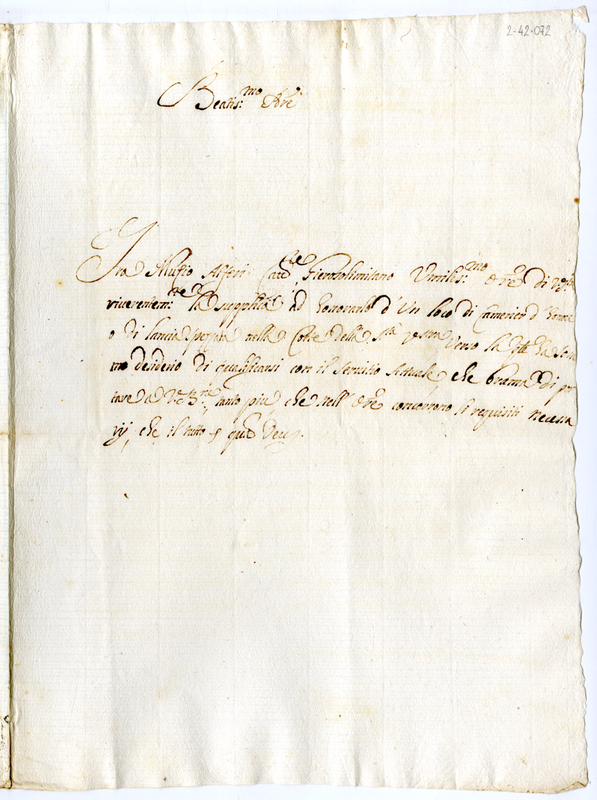 2-42-072
Beatis.mo Pre
Fra Mutio Alferi Caval.re Gierosolimitano Umilis.mo Ore di V. S.tà
riverentem.te la supplica ad honorarlo d'Un loco di Camerier d'honore
o di lancia spezzata nella Corte della S.tà Vostra verso la
mo desiderio di qualificarsi con il Servitio Attuale che brama di pre
stare a tanto più che nell' Ore concorrono li requisiti necessa
rij, che il tutto Deus.